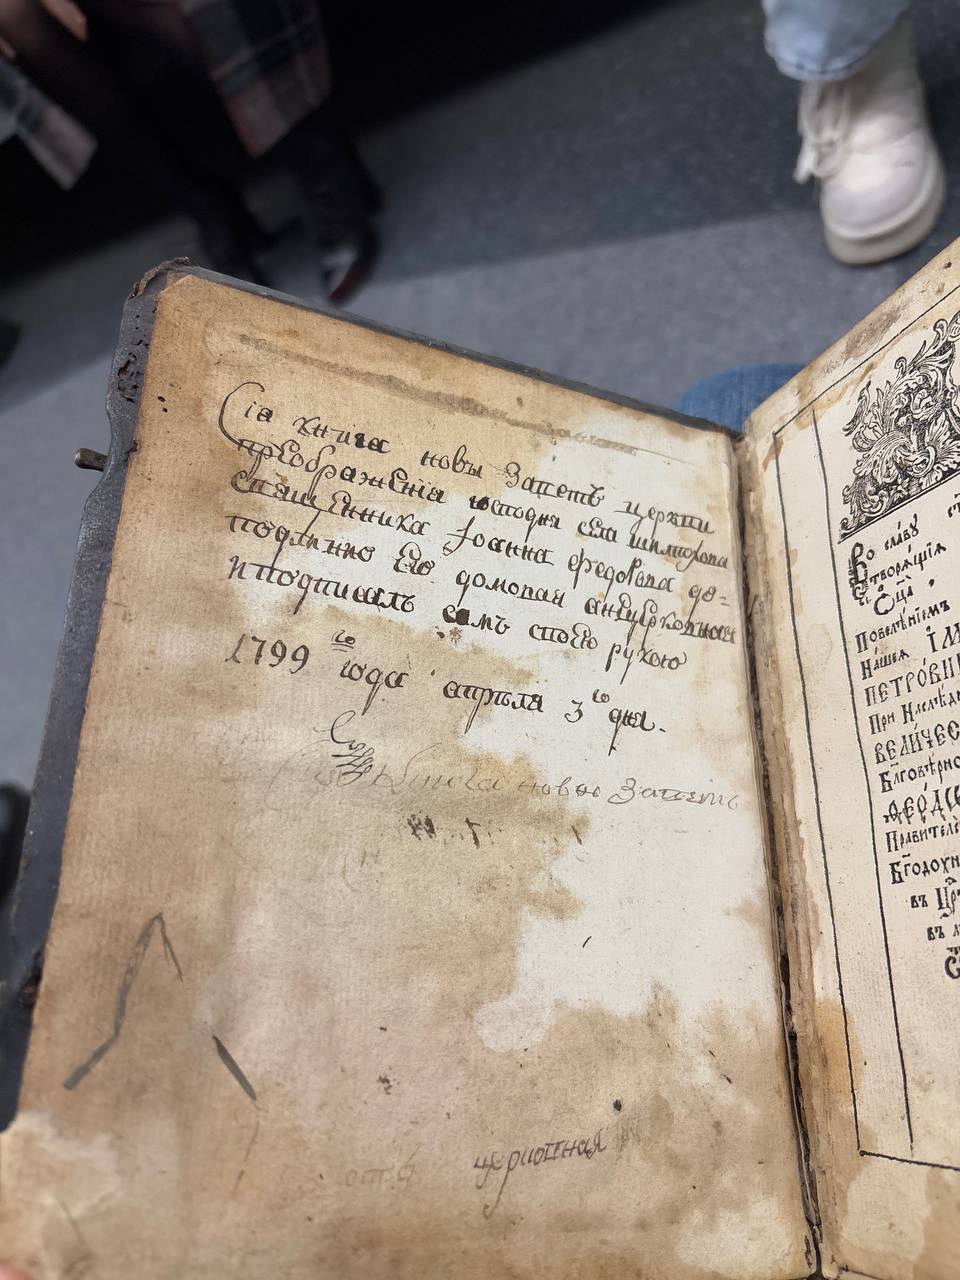 Сiя книга новы Заветъ церкви
преображенiя господня села шилигова
священника Iоанна федорова до=
подлинно его домовая а нецерковная
и подписалъ самъ своею рукою
1799 го года апреля 3 го дня.
Сия Книга новые Заветъ
церковная
Во славу
сотворящiя
Оц҃а
Повелѣнiемъ
Нашея
ПЕТРОВН
При Наслѣд
ВЕЛИЧЕС
Бл҃говѣрно
ѲЕОДО
Правителс
Бг҃одохн
въ Цр
въ